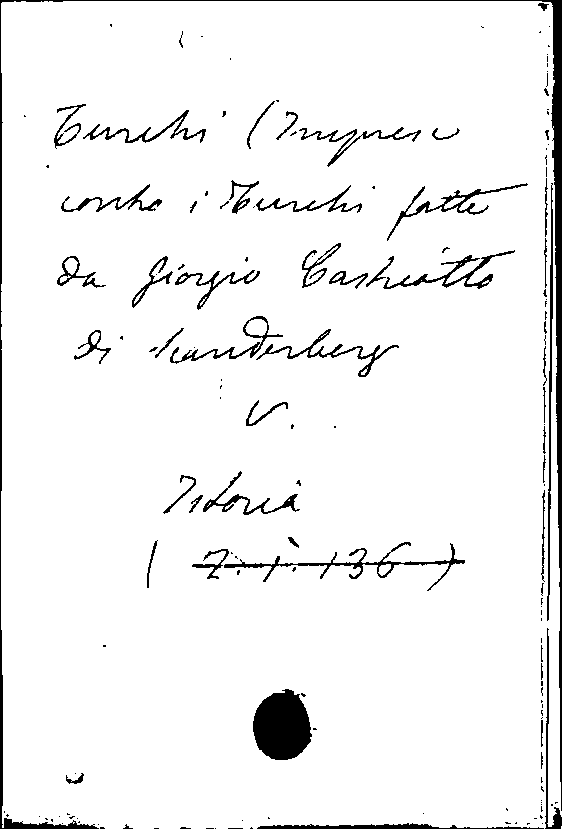 Turchi (Imprese
contro i Turchi fatte
da Giorgio Castriotto
di Scanderberg
V.
Istoria
( Z. 1. 136 )